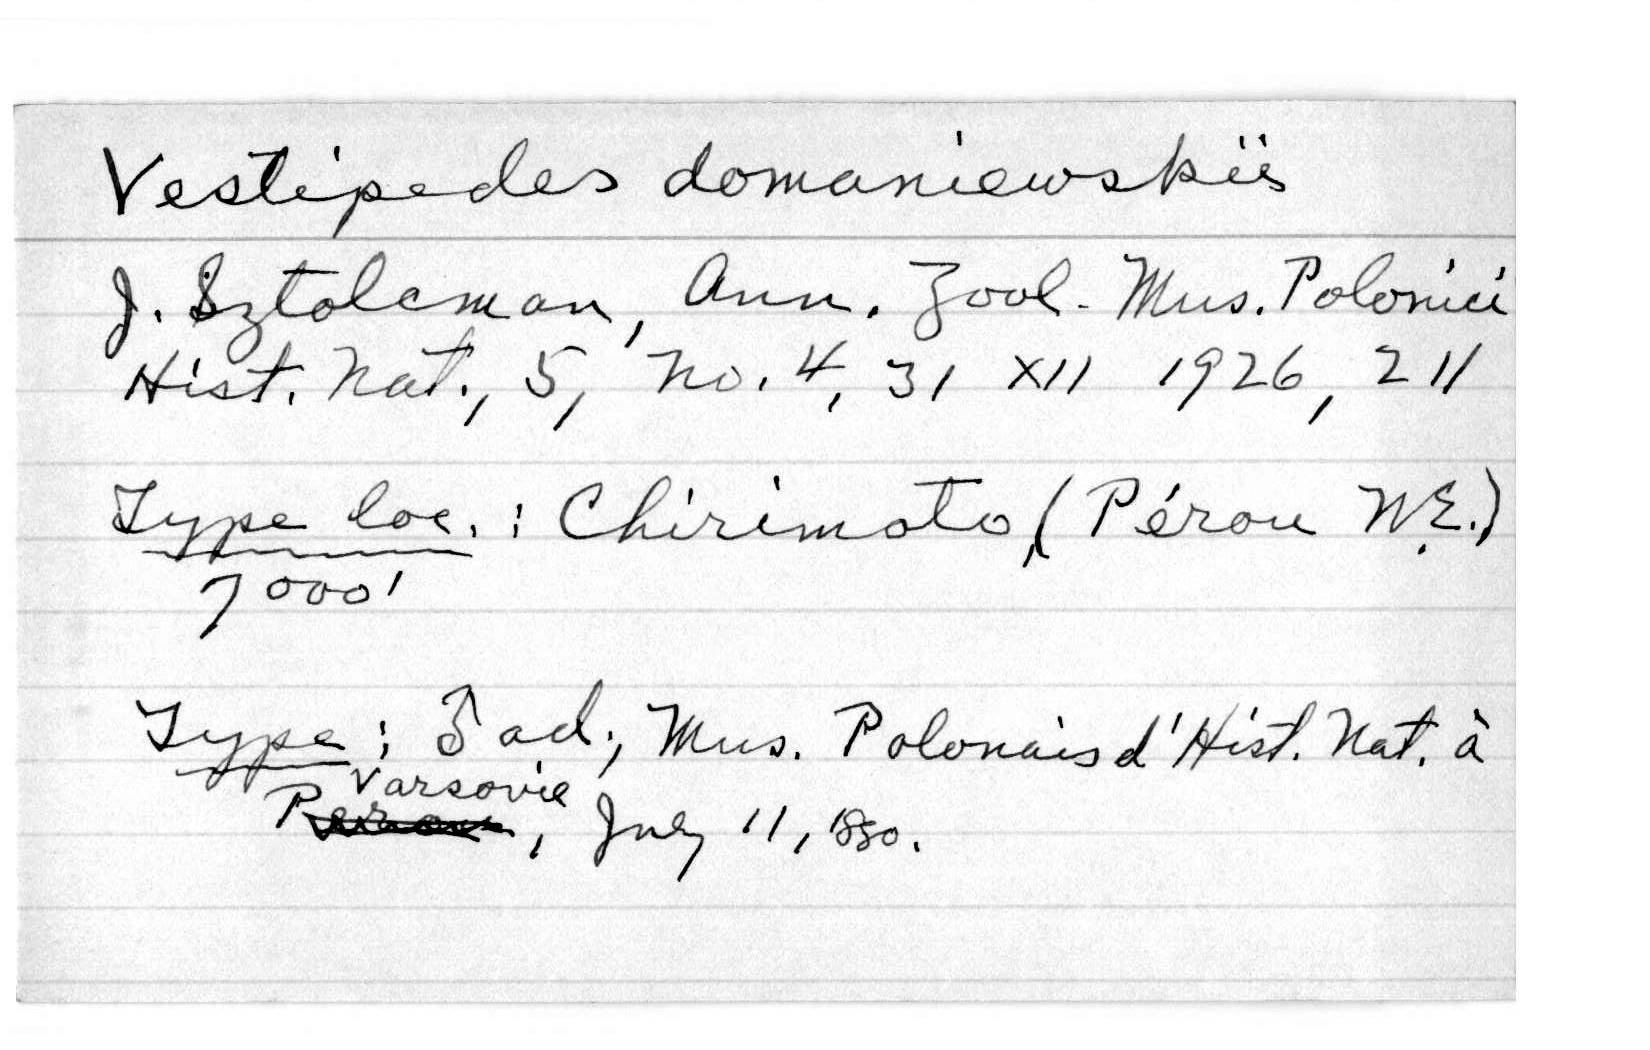 Vestipedes domaniewskii
J. Sztolcman, Ann. Zool. Mus. Polonici
Hist. Nat., 5, no. 4, 31 XII 1926, 211
Type loc.: Chirimoto, (Pérou N.E.)
7000'
Type: ♂ ad., Mus. Polonais d'Hist. Nat. à
Varsovie
, July 11, 1880.